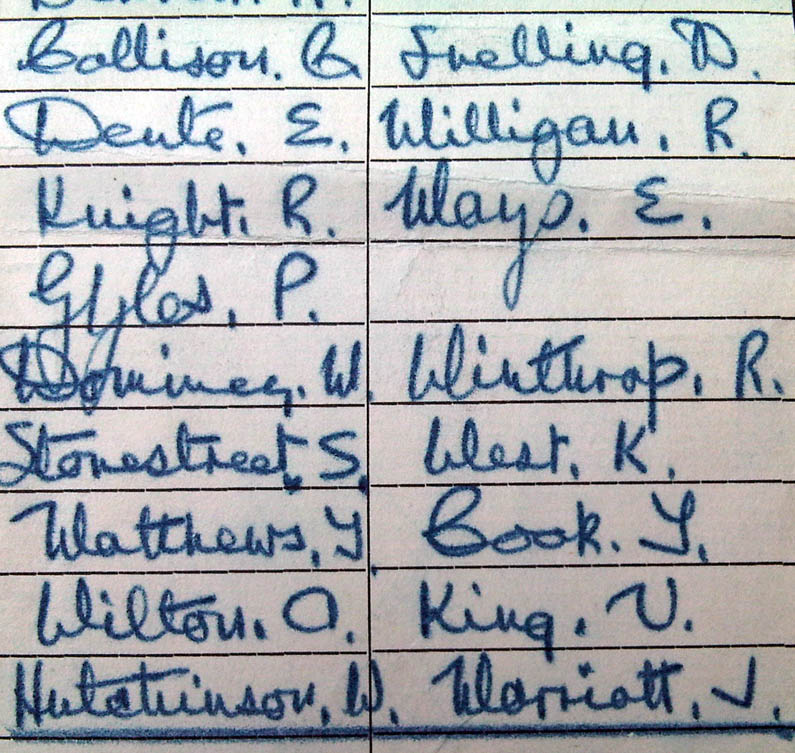 Collison. G. Snelling. D.
Dente. E. Milligan. R.
Knight. R. Mays. E.
Gyles. P.
Dominey. W. Winthrop. R.
Stonestreet. S. West. K.
Matthews. T. Cook. T.
Wilton. O. King. V.
Hutchinson. W. Marriott. J.